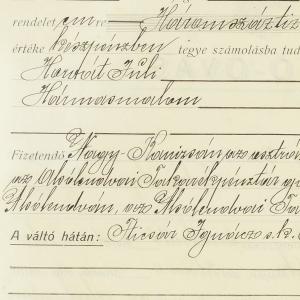 rendelet, em re Háromszáztiz
értéke készpénzben tegye számolásba tud
Hantót Juli
Hármasmalom
Fizetendő Nagy-Kanizsán, az osztrák
az Alsólendvai Takarékpénztár
Alsólendván, az Alsólendvai Ta
A váltó hátán: Flicsár Ignácz s. k.